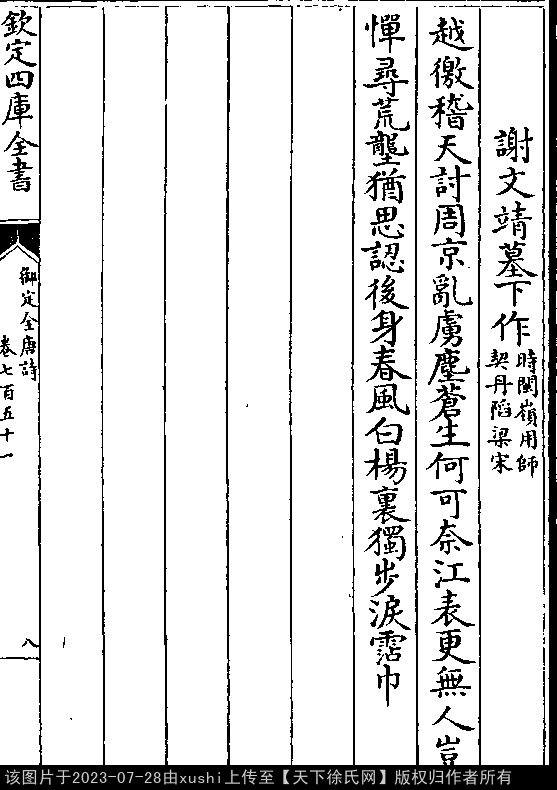 謝文靖墓下作時閩嶺用師
契丹䧟梁宋
越徼稽天討周京亂虜塵蒼生何可奈江表更無人豈
憚尋荒壟猶思認後身春風白楊裏獨步淚霑巾
欽定四庫全書
御定全唐詩
卷七百五十一
八
该图片于2023-07-28由xushi上传至【天下徐氏网】版权归作者所有